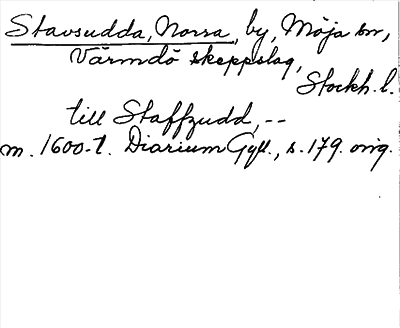 Stavsudda, Norra, by, Möja sn,
Värmdö skeppslag,
Stockh. l.
till Staffzudd, --
m. 1600-t. Diarium Gyll., s. 179. orig.